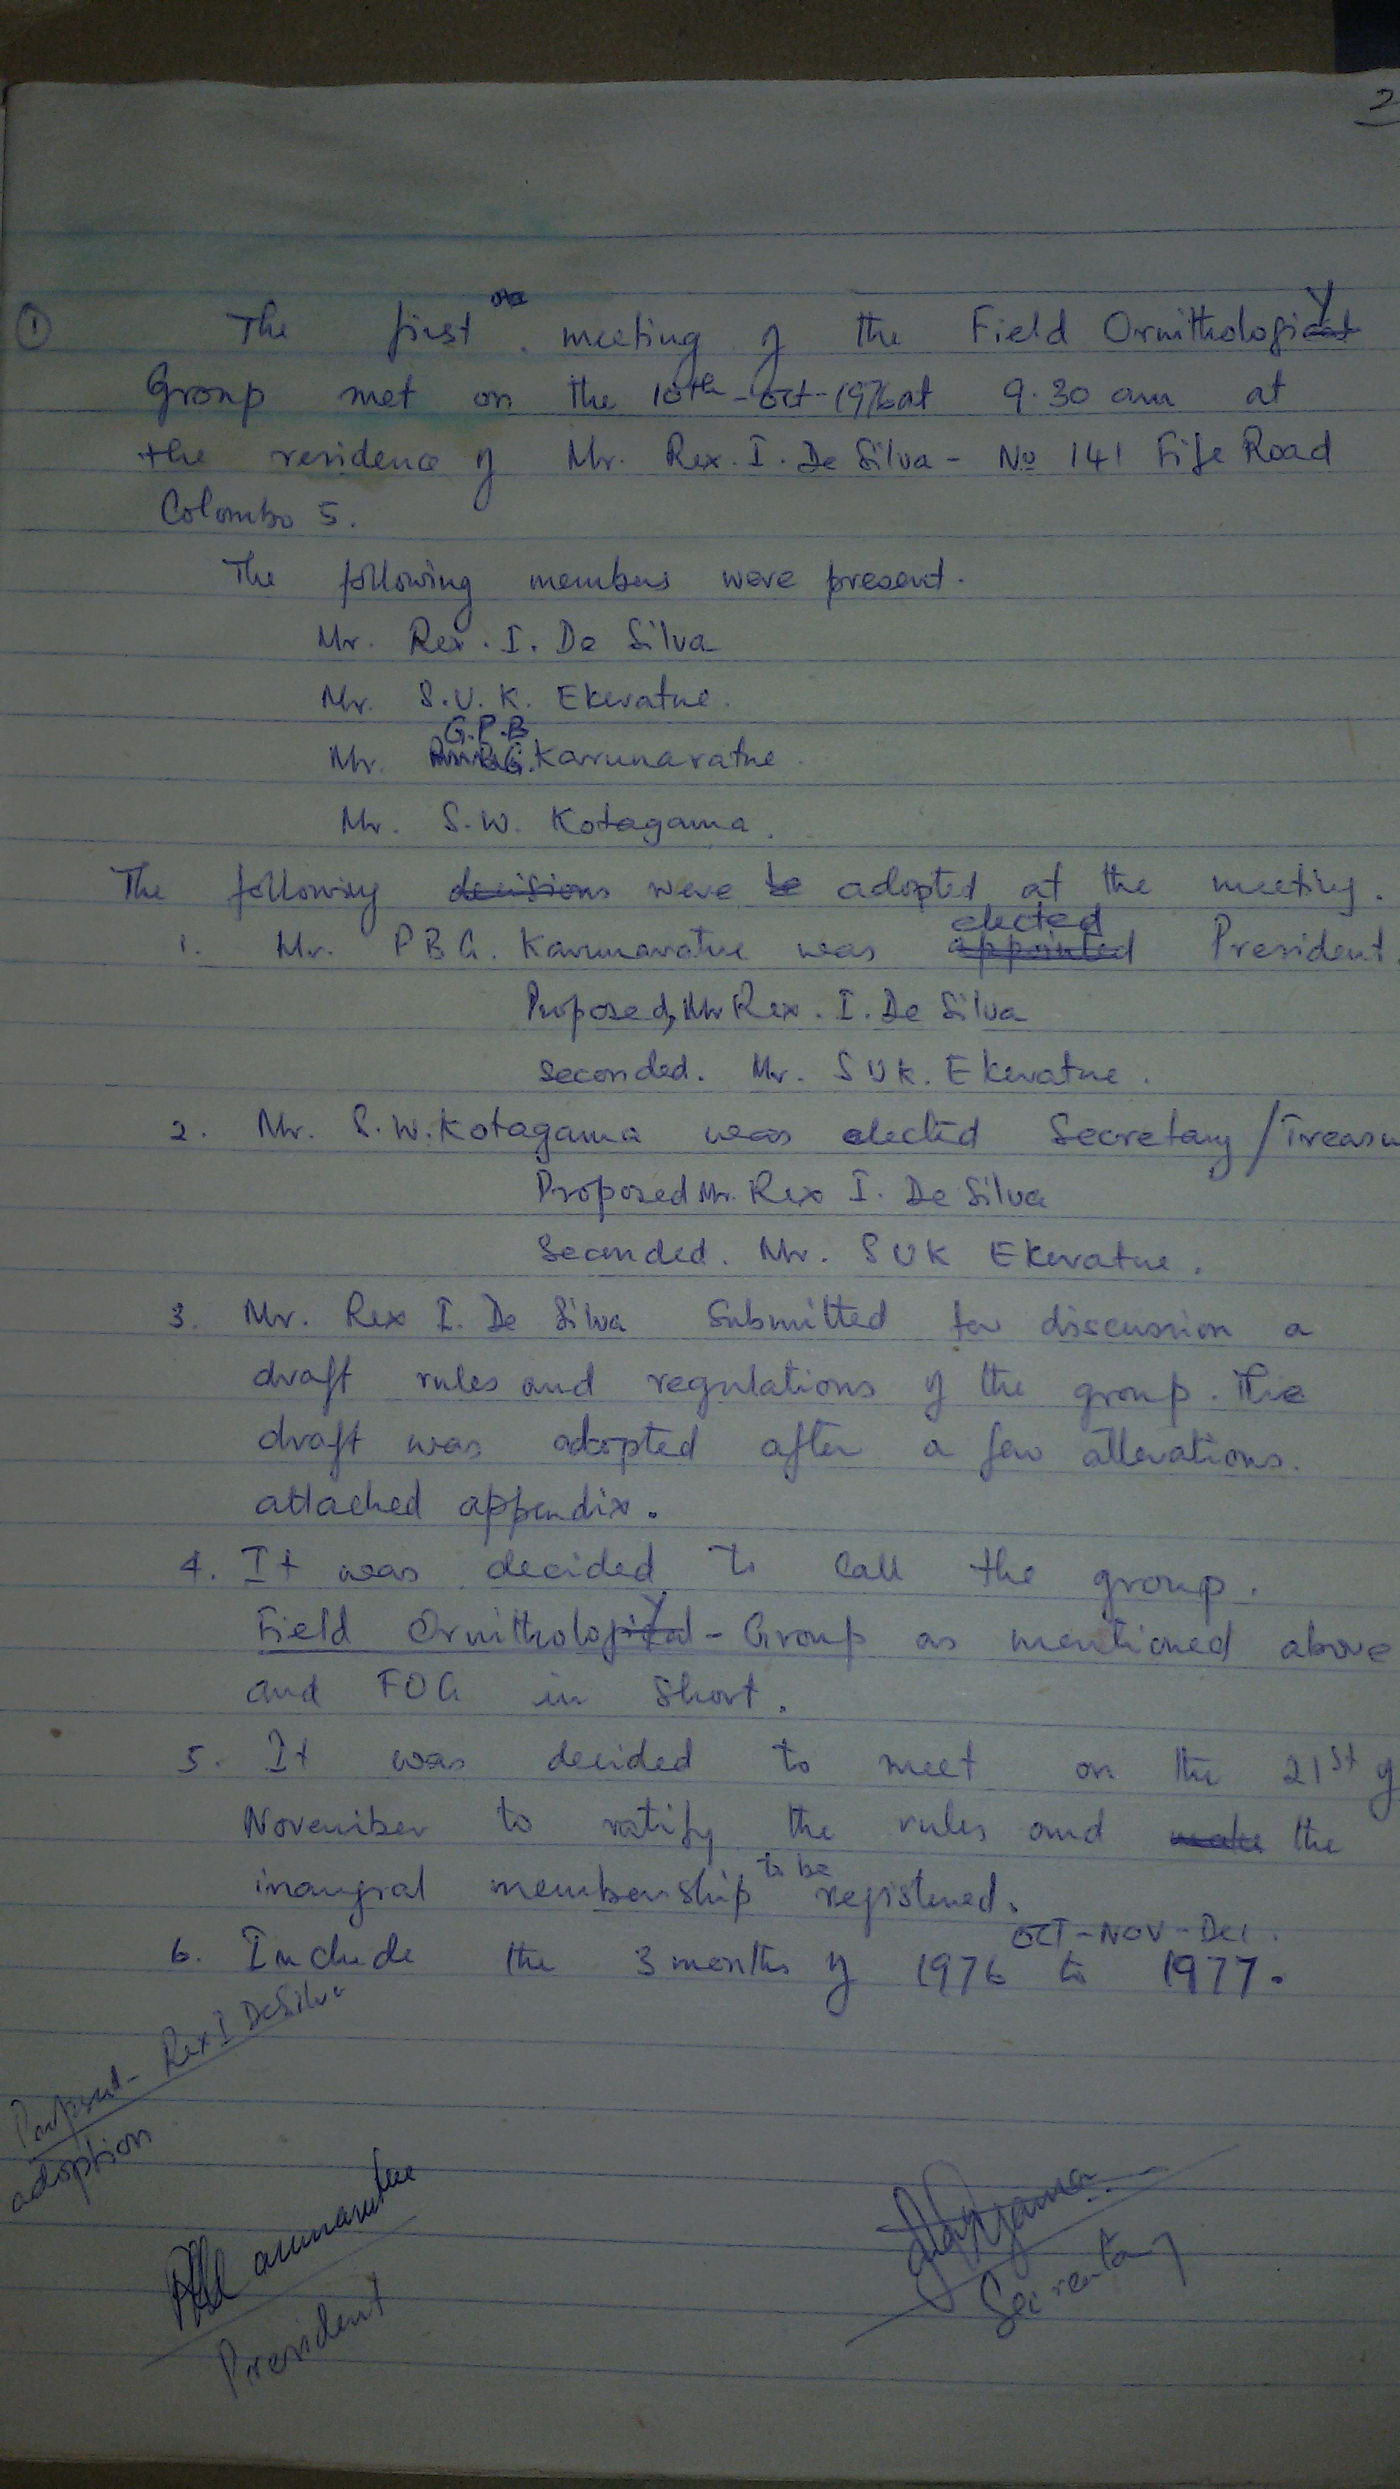 2
① The first meeting of the Field Ornithology
Group met on the 10th - Oct - 1976 at 9.30 am at
the residence of Mr. Rex. I. De Silva - No 141 Fife Road
Colombo 5.
The following members were present.
Mr. Rex. I. De Silva
Mr. S.U.K. Ekeratne.
G.P.B
Mr. Karunaratne.
Mr. S.W. Kotagama.
The following decisions were be adopted at the meeting.
elected
1. Mr. PBG. Karunaratne was appointed President.
Proposed, Mr Rex. I. De Silva
Seconded. Mr. SUK. Ekeratne.
2. Mr. S.W. Kotagama was elected Secretary / Treasu
Proposed Mr. Rex I. De Silva
Seconded. Mr. SUK Ekeratne.
3. Mr. Rex I. De Silva Submitted for discussion a
draft rules and regulations of the group. The
draft was adopted after a few alterations.
attached appendix.
4. It was decided to call the group.
Field Ornithology - Group as mentioned above
and FOG in short.
5. It was decided to meet on the 21st of
November to ratify the rules and make the
to be
inaugral membership registered.
OCT - NOV - DEC.
6. Include the 3 months of 1976 to 1977.
Rex I De Silva
adoption
President
Secretary